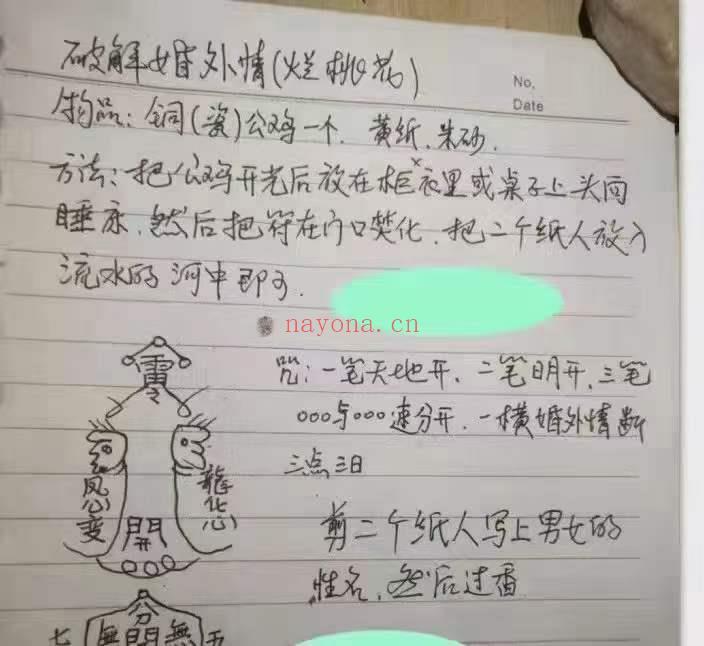 破解婚外情(烂桃花)
No,
Date
物品:铜(瓷)公鸡一个.黄纸.朱砂.
方法:把公鸡开光后放在柜衣里或桌子上头向
睡床.然后把符在门口焚化.把二个纸人放入
流水的河中即可.
nayona.cn
咒:一笔天地开.二笔明开.三笔
ooo与ooo速分开.一横婚外情断
三点三日
剪二个纸人写上男女的
姓名.然后过香
雷
令
鳳心變
龍化心
開
分
七無開無五